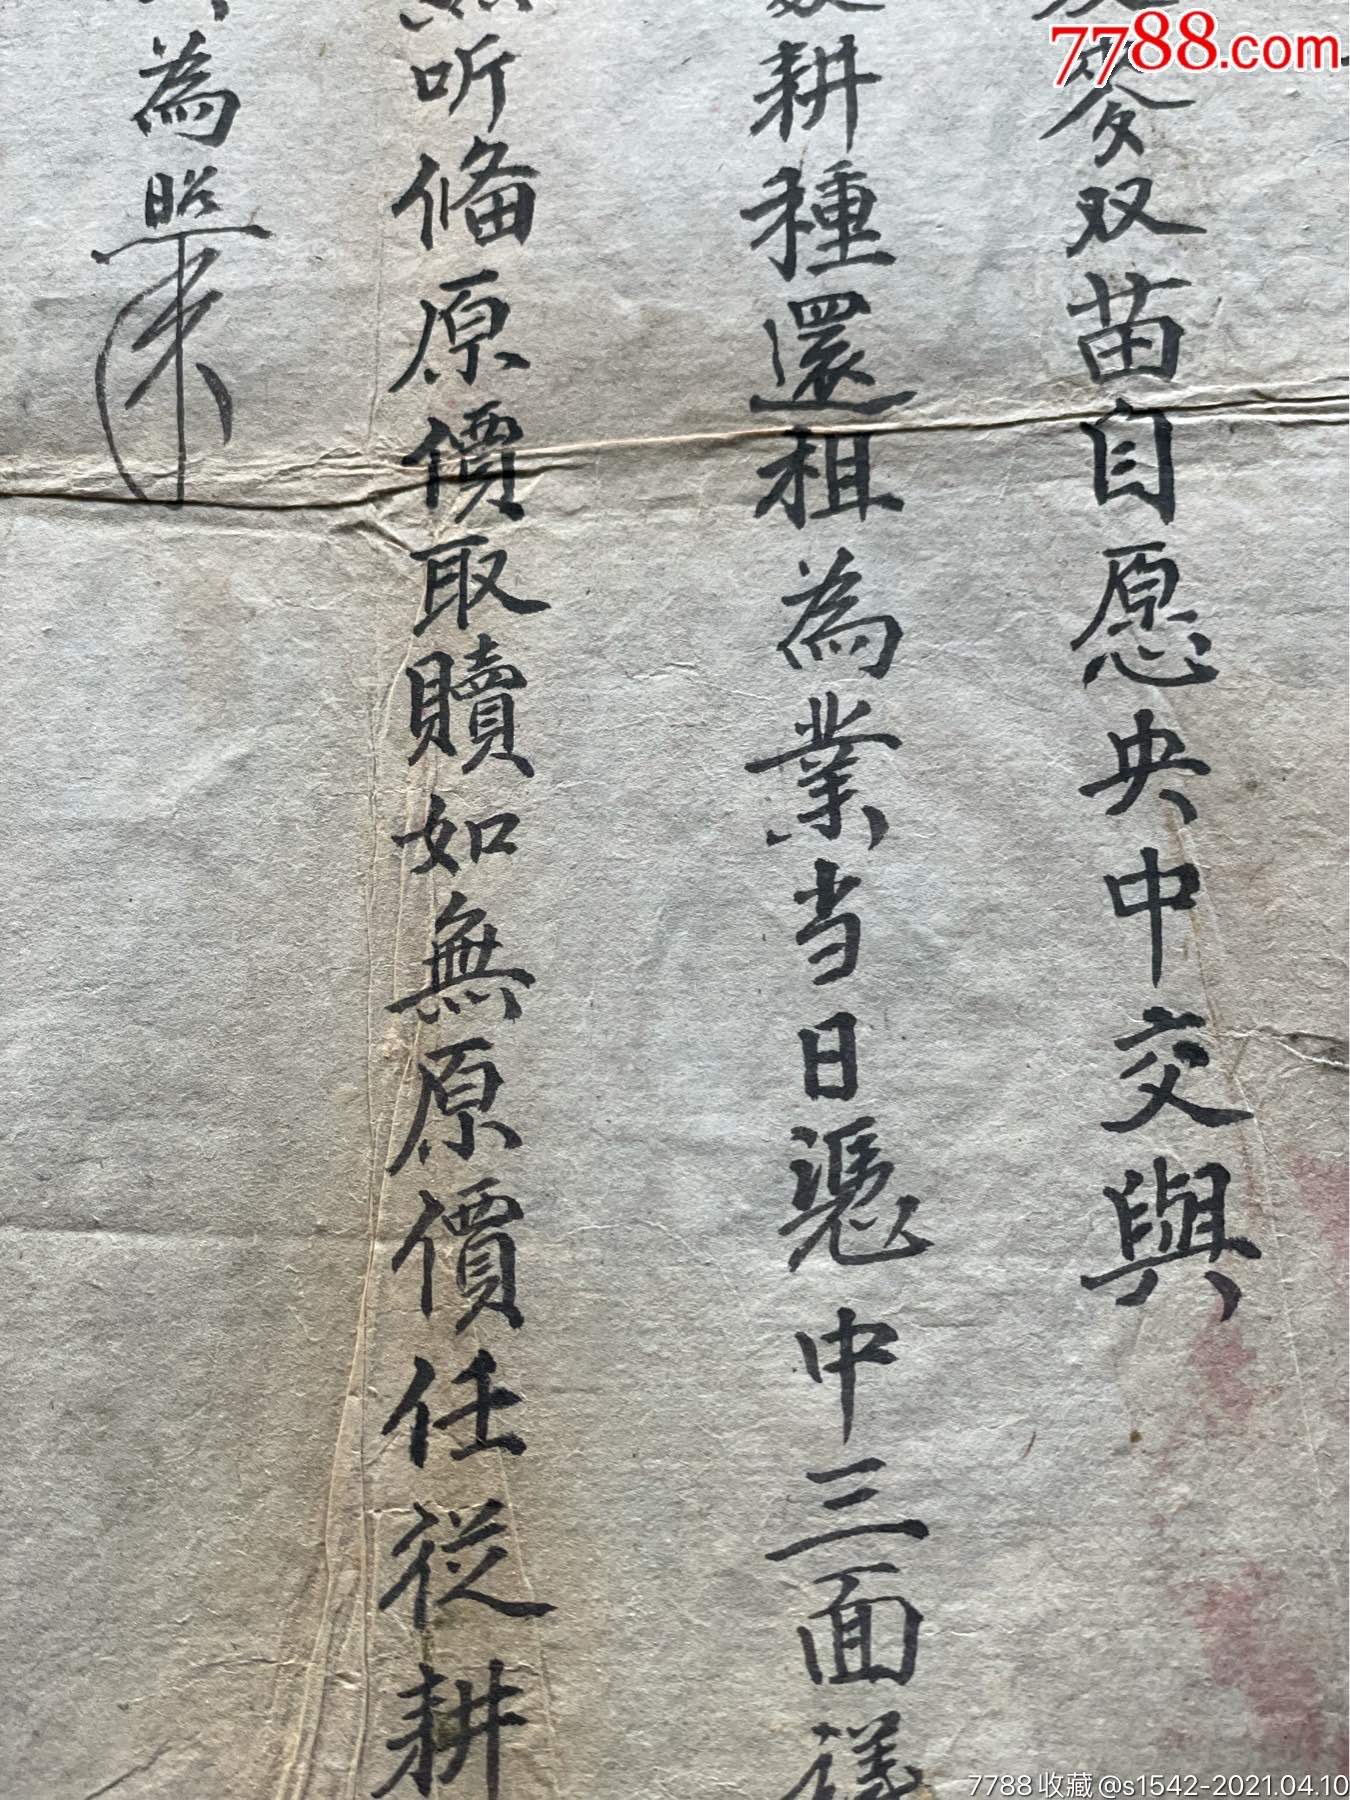 7788.com
麥双苗自愿央中交與
耕種還租為業当日憑中三面議
听俻原價取贖如無原價任從耕
為照
7788收藏@s1542-2021.04.10